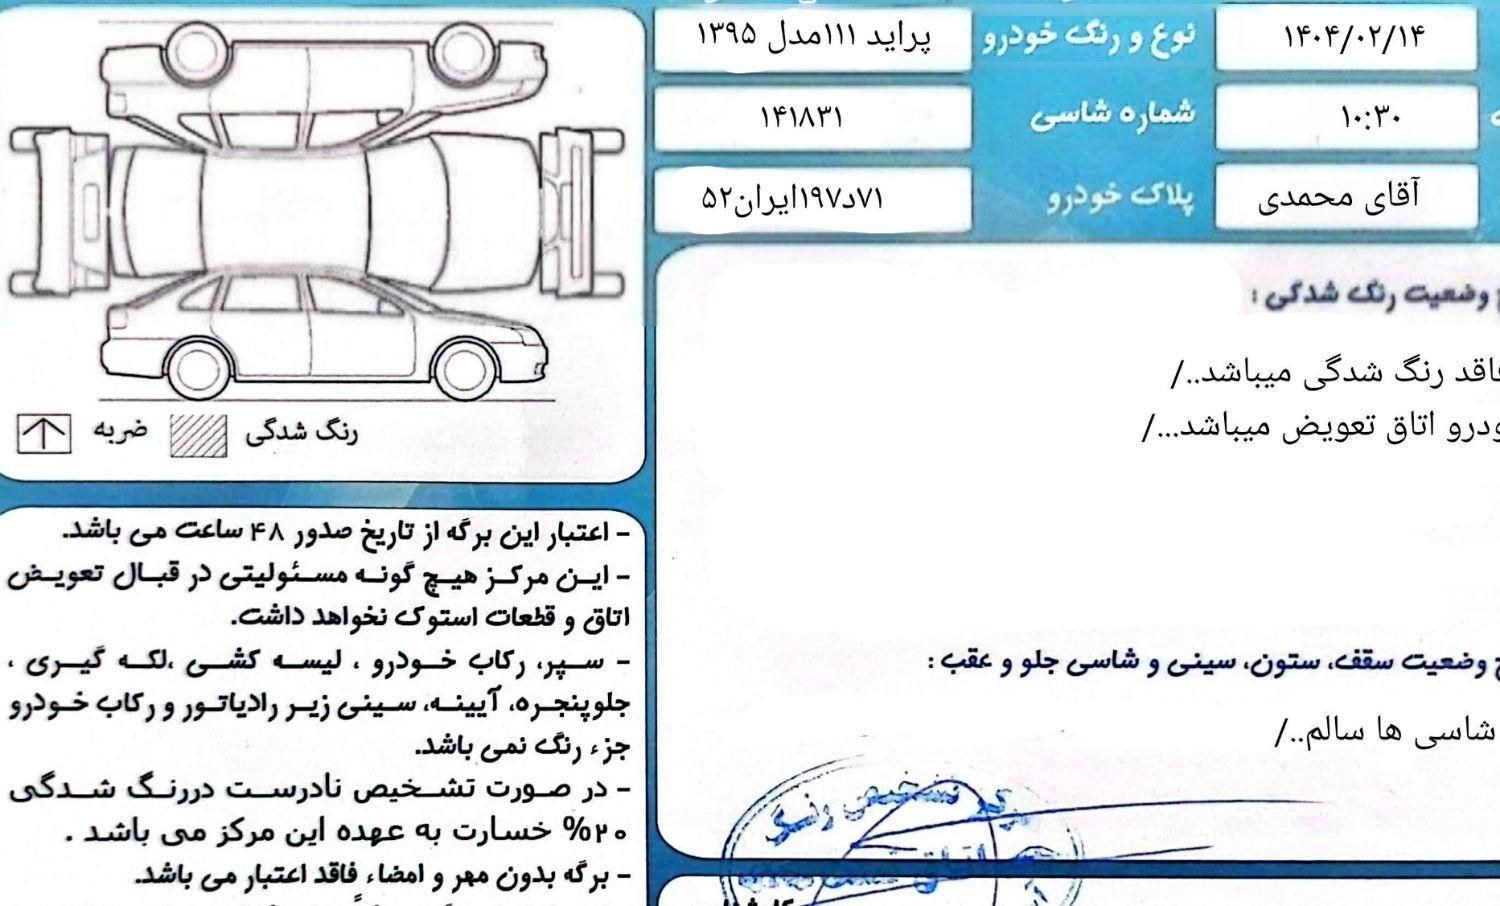 ۱۴۰۴/۰۲/۱۴
نوع و رنگ خودرو
پراید ۱۱۱مدل ۱۳۹۵
۱۰:۳۰
شماره شاسی
۱۴۱۸۳۱
آقای محمدی
پلاک خودرو
۷۱د۱۹۷ایران۵۲
وضعیت رنگ شدگی :
فاقد رنگ شدگی میباشد../
خودرو اتاق تعویض میباشد.../
وضعیت سقف، ستون، سینی و شاسی جلو و عقب :
شاسی ها سالم../
مرکز تشخیص رنگ
رنگ شدگی
ضربه
- اعتبار این برگه از تاریخ صدور ۴۸ ساعت می باشد.
- این مرکز هیچ گونه مسئولیتی در قبال تعویض
اتاق و قطعات استوک نخواهد داشت.
- سپر، رکاب خودرو ، لیسه کشی ،لکه گیری ،
جلوپنجره، آیینه، سینی زیر رادیاتور و رکاب خودرو
جزء رنگ نمی باشد.
- در صورت تشخیص نادرست دررنگ شدگی
۲۰% خسارت به عهده این مرکز می باشد .
- برگه بدون مهر و امضاء فاقد اعتبار می باشد.